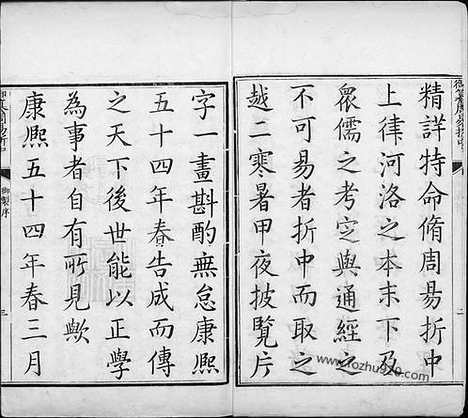 精詳特命脩周易折中
上律河洛之本末下及
衆儒之考定與通經之
不可易者折中而取之
越二寒暑甲夜披覽片
字一畫斟酌無怠康熙
五十四年春告成而傳
之天下後世能以正學
為事者自有所見歟
康熙五十四年春三月
御纂周易折中
二
御製序
三
www.fozhu920.com